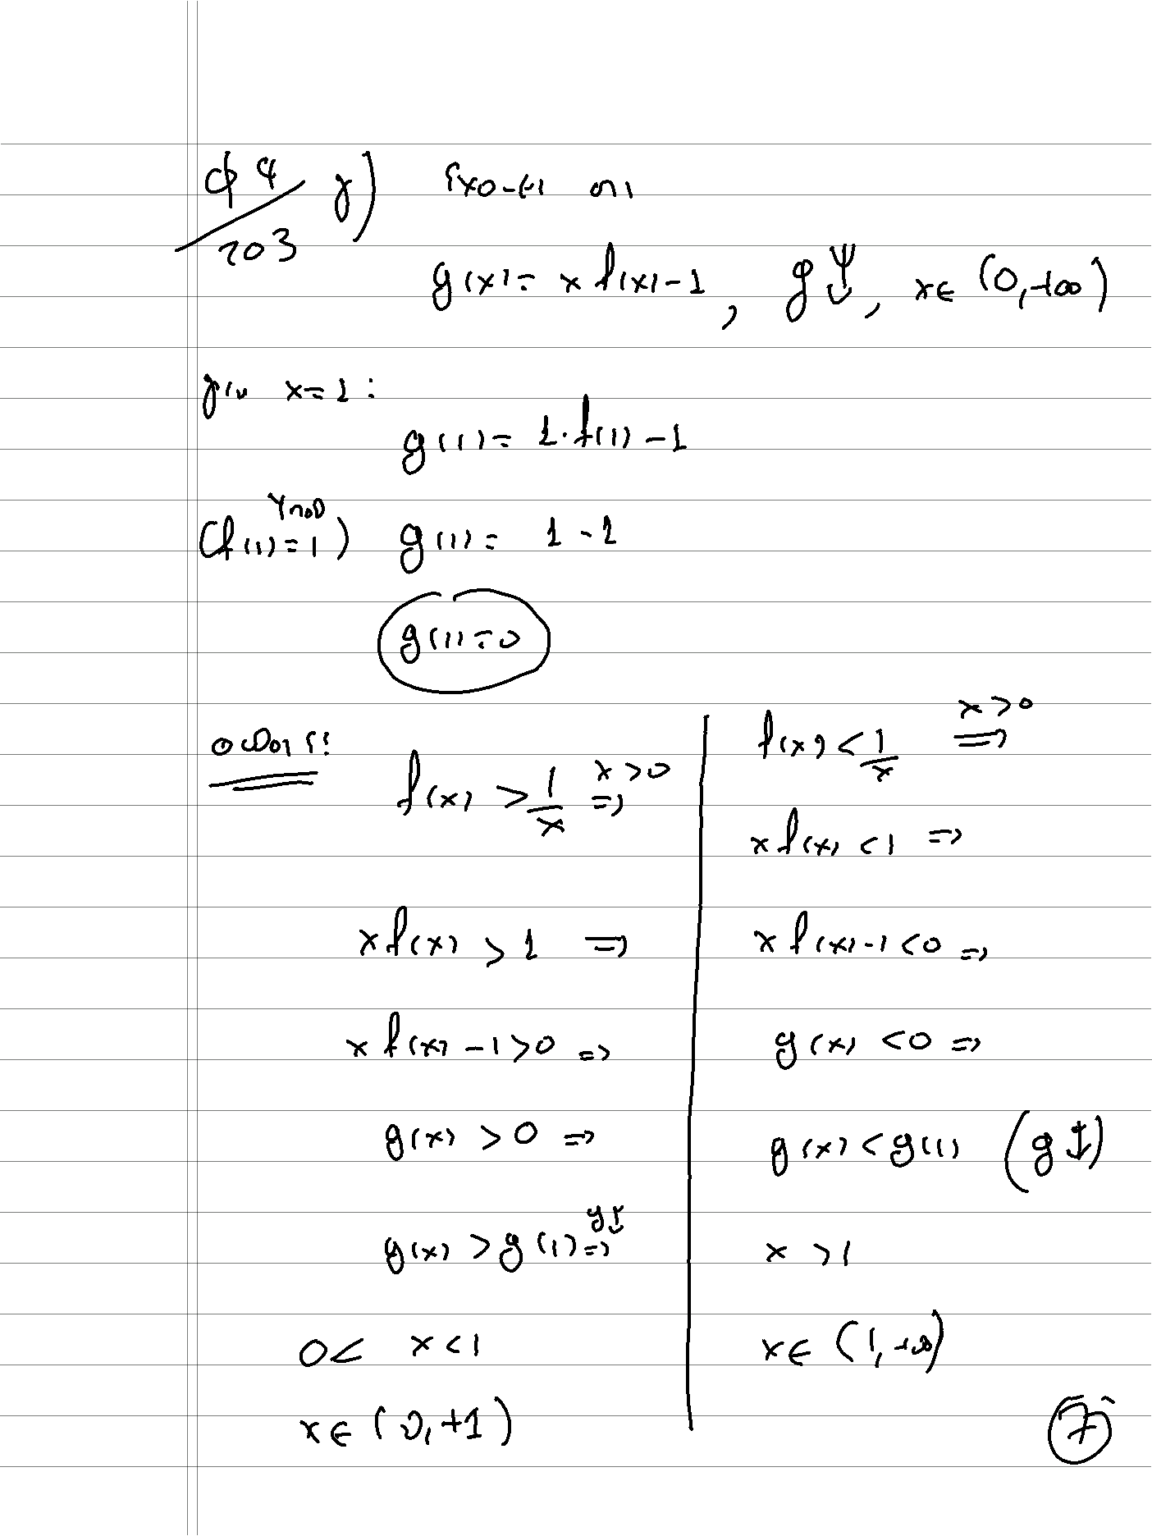 φ4/203 γ) έχουμε οτι
g(x) = x f(x) - 1, g ↓, x ∈ (0, +∞)
για x = 1:
g(1) = 1·f(1) - 1
(f(1) = 1) g(1) = 1 - 1
g(1) = 0
f(x) > 1/x x>0 ⇒
x f(x) > 1 ⇒
x f(x) - 1 > 0 ⇒
g(x) > 0 ⇒
g(x) > g(1) g↓ ⇒
0 < x < 1
x ∈ (0, +1)
f(x) < 1/x x>0 ⇒
x f(x) < 1 ⇒
x f(x) - 1 < 0 ⇒
g(x) < 0 ⇒
g(x) < g(1) (g ↓)
x > 1
x ∈ (1, +∞)
7